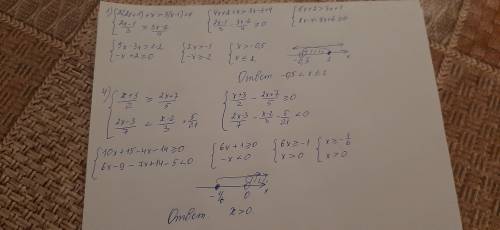 { 2(2x+1)+x>3(x-1)+4
{ (2x-1)/3 ≥ (3x-2)/4
{ 4x+2+x>3x-3+4
{ (2x-1)/3 - (3x-2)/4 ≥ 0
{ 5x+2>3x+1
{ 8x-4-9x+6≥0
{ -x+2≥0
{ 2x>-1
{ -x≥-2
{ x>-0,5
{ x≤2
-0,5 2 x
Ответ -0,5<x≤2
4) { (x+3)/2 ≥ (2x+7)/5
{ (2x-3)/7 < (x-2)/3 + 5/21
{ (x+3)/2 - (2x+7)/5 ≥0
{ (2x-3)/7 - (x-2)/3 - 5/21 <0
{ 10x+15-4x-14≥0
{ 6x-9-7x+14-5<0
{ 6x+1≥0
{ -x<0
{ 6x≥-1
{ x>0
{ x≥-1/6
{ x>0
0 x
Ответ x>0